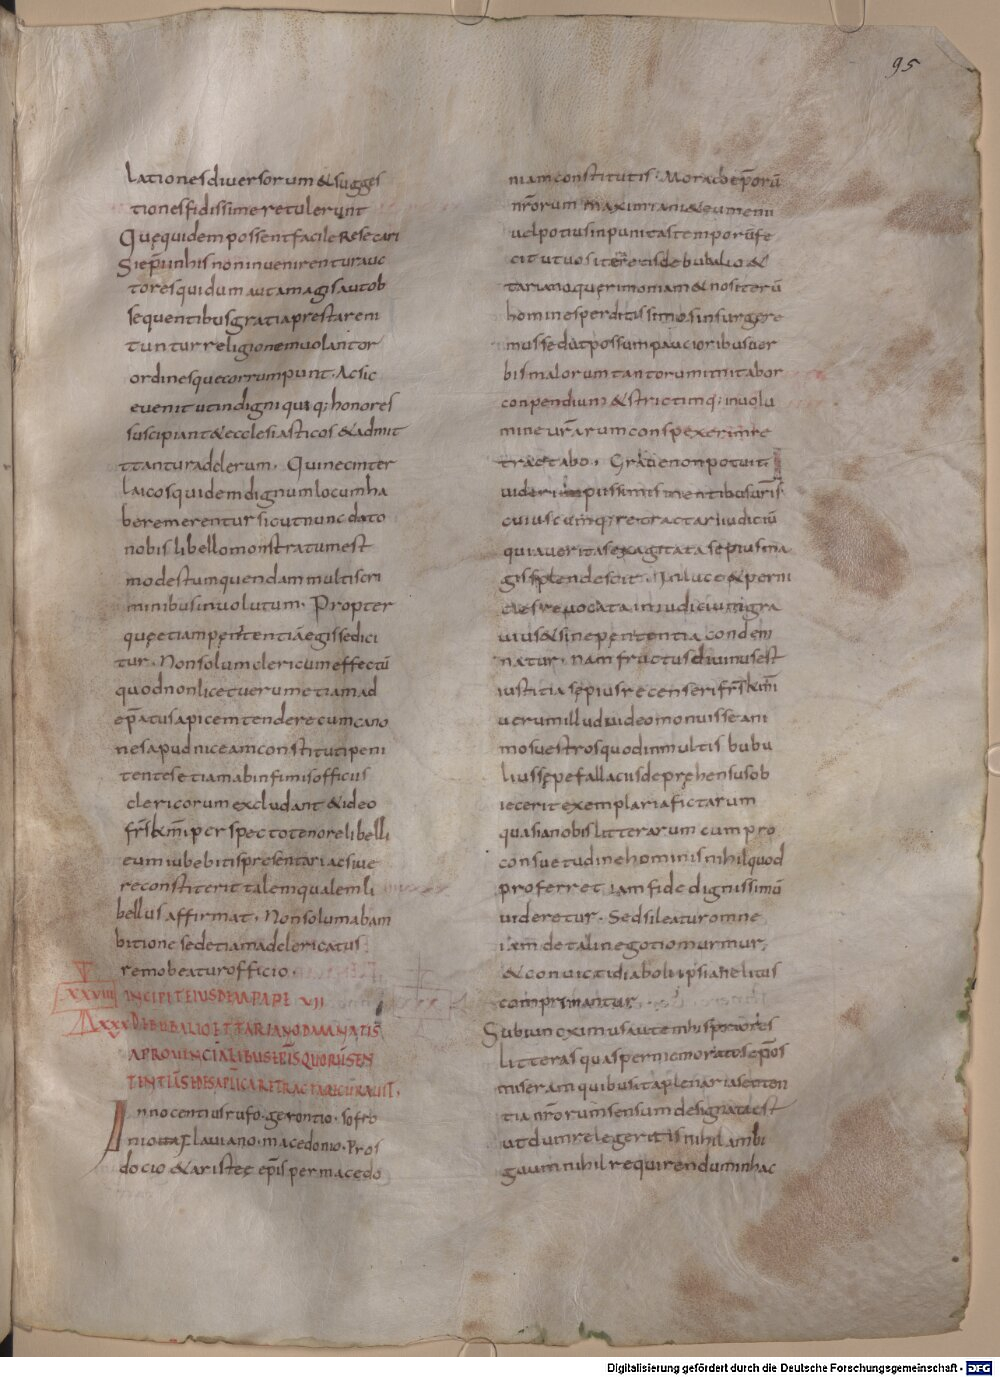 95
lationesdiuersorum&sugges
tionesfidissimeretulerunt
Quęquidempossentfacileresecari
Siep̄iinhisnoninuenirenturauc
toresquidumautamagisautob
sequentibusgratiaprestareni
tunturreligionemuolantor
ordinesquecorrumpunt. Acsic
euenitutindigniquiq; honores
suscipiant&ecclesiasticos&admit
ttanturadclerum. Quinecinter
laicosquidemdignumlocumha
beremerentursicutnuncdato
nobislibellomonstratumest
modestumquendammultiscri
minibusinuolutum. Propter
quęetiampenitentiāegissedici
tur. Nonsolumclericumeffectū
quodnonlicetuerumetiamad
ep̄atusapicemtenderecumcano
nesapudniceamconstitutipeni
tentesetiamabinfimisofficiis
clericorumexcludant&ideo
fr̄sk̄mīperspectotenorelibelli
eumiubebitispresentariacsiue
reconstiterittalemqualemli
bellusaffirmat. Nonsolumabam
bitionesedetiamadclericatus
remobeaturofficio.
XXVIIII INCIPITEIUSDEMPAPE VII
XXX DEBUBALIOETTARIANODAMNATIS
APROUINCIALIBUSEPĪSQUORŪSEN
TENTIĀSEDESAPLICARETRACTARICURAUIT.
Innocentiusrufo.gerontio.sofro
nio Flauiano.macedonio.Pros
docio &aristeę ep̄ispermacedo
niamconstitutis. Moraep̄orū
nr̄orum maximiani&eumeni
uelpotiusinpunitastemporūfe
cit utuositerētisdebubalio&
tarianoquerimoniam&nositerū
hominesperditissimosinsurgere
mussedutpossumpaucioribusuer
bismalorumtantorumimitabor
conpendium; &strictimq; inuolu
mineur̄arumconspexerimre
tractabo. Grātienonpotuit
uideri piissimismentibusur̄is
cuiuscumq; retractariiudiciū
quiaueritasexagitatasepiusma
gissplendescit. Inluce&perni
ciesreuocatainiudiciumgra
uius&sinepenitentiacondem
natur. namfructusdiuinusest
iustitiasepiusrecenserifr̄sk̄mī
uerumilludiuideomonuisseani
mosuestrosquodinmultis bubu
liussępefallaciisdepręhensusob
iecerit exemplariafictarum
quasianobislitterarum cumpro
consuetudinehominisnihilquod
proferret iamfidedignissimū
uideretur. Sedsileaturomne
iamdetalinegotiomurmur,
&conuictidiaboliipsianelitus
comprimantur.
Subianoximusautemhispriores
litterasquaspermemoratosep̄os
miseramquibusitaplenariasenten
tia nr̄orumsensumdesignataest
utdumrelegeritisnihilambi
guumnihilrequirenduminhac
Digitalisierung gefördert durch die Deutsche Forschungsgemeinschaft - DFG